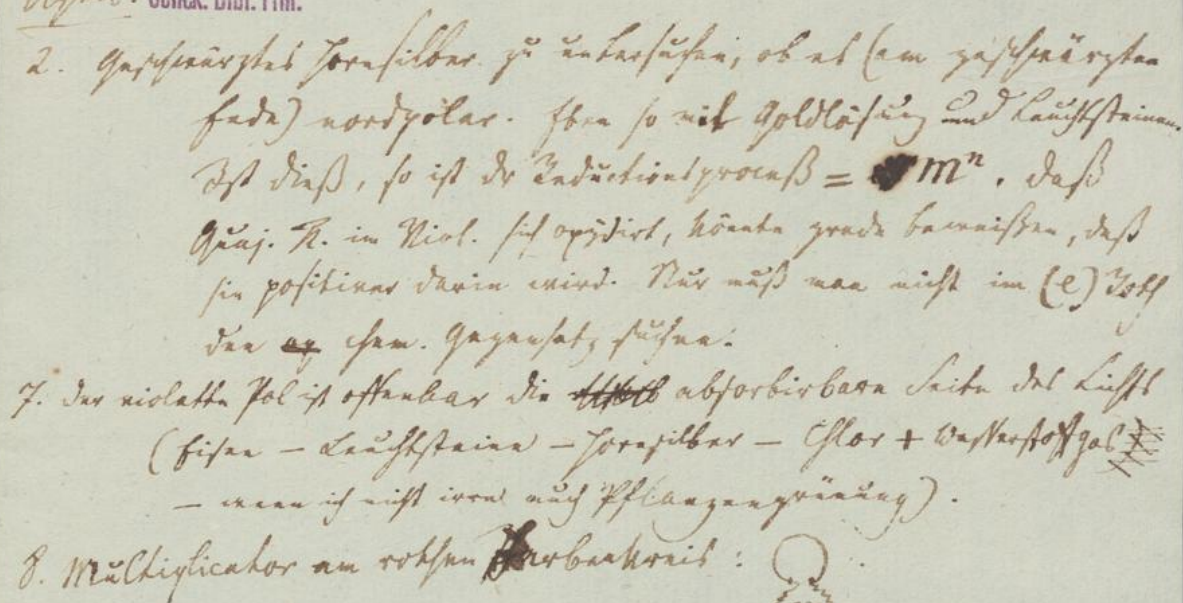 Senck. Bibl. Ffm.
2. Geschwärztes Hornsilber zu untersuchen, ob es (am geschwärzten
Ende) nordpolar. Eben so mit Goldlösung und Leuchtsteinen.
Ist dieß, so ist der Reductionsproceß = mⁿ. Daß
Guaj. H. im Viol. sich oxydirt, könnte grade beweißen, daß
sie positiver darin wird. Nur muß man nicht im (e) Roth
den chem. Gegensatz suchen.
7. Der violette Pol ist offenbar die absorbirbare Seite des Lichts
(Eisen – Leuchtsteine – Hornsilber – Chlor + Wasserstoffgas
– wenn ich nicht irre auch Pflanzengrünung).
8. Multiplicator am rothen Farbenkreis: